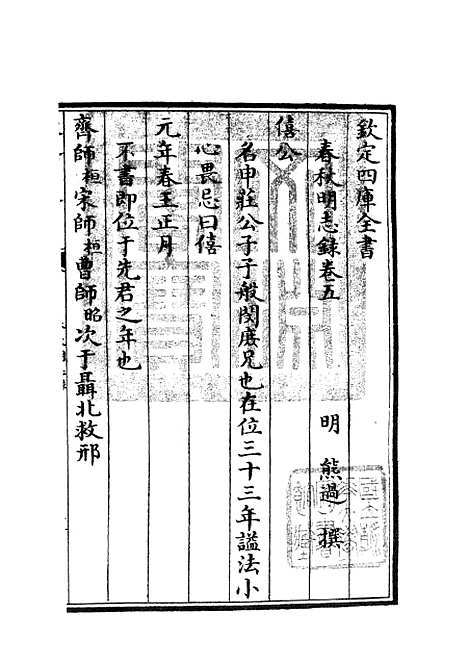 欽定四庫全書
春秋明志錄卷五
明 熊過 撰
僖公
名申莊公子子般閔庶兄也在位三十三年謚法小
心畏忌曰僖
元年春王正月
不書即位于先君之年也
齊師桓宋師桓曹師昭次于聶北救邢